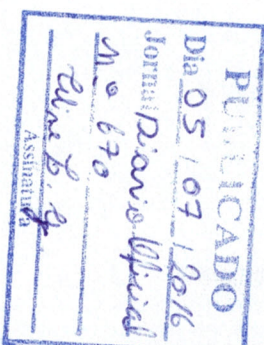 PUBLICADO
Dia 05 / 07 / 2016
Jornal Diario Oficial
Nº 670
Assinatura